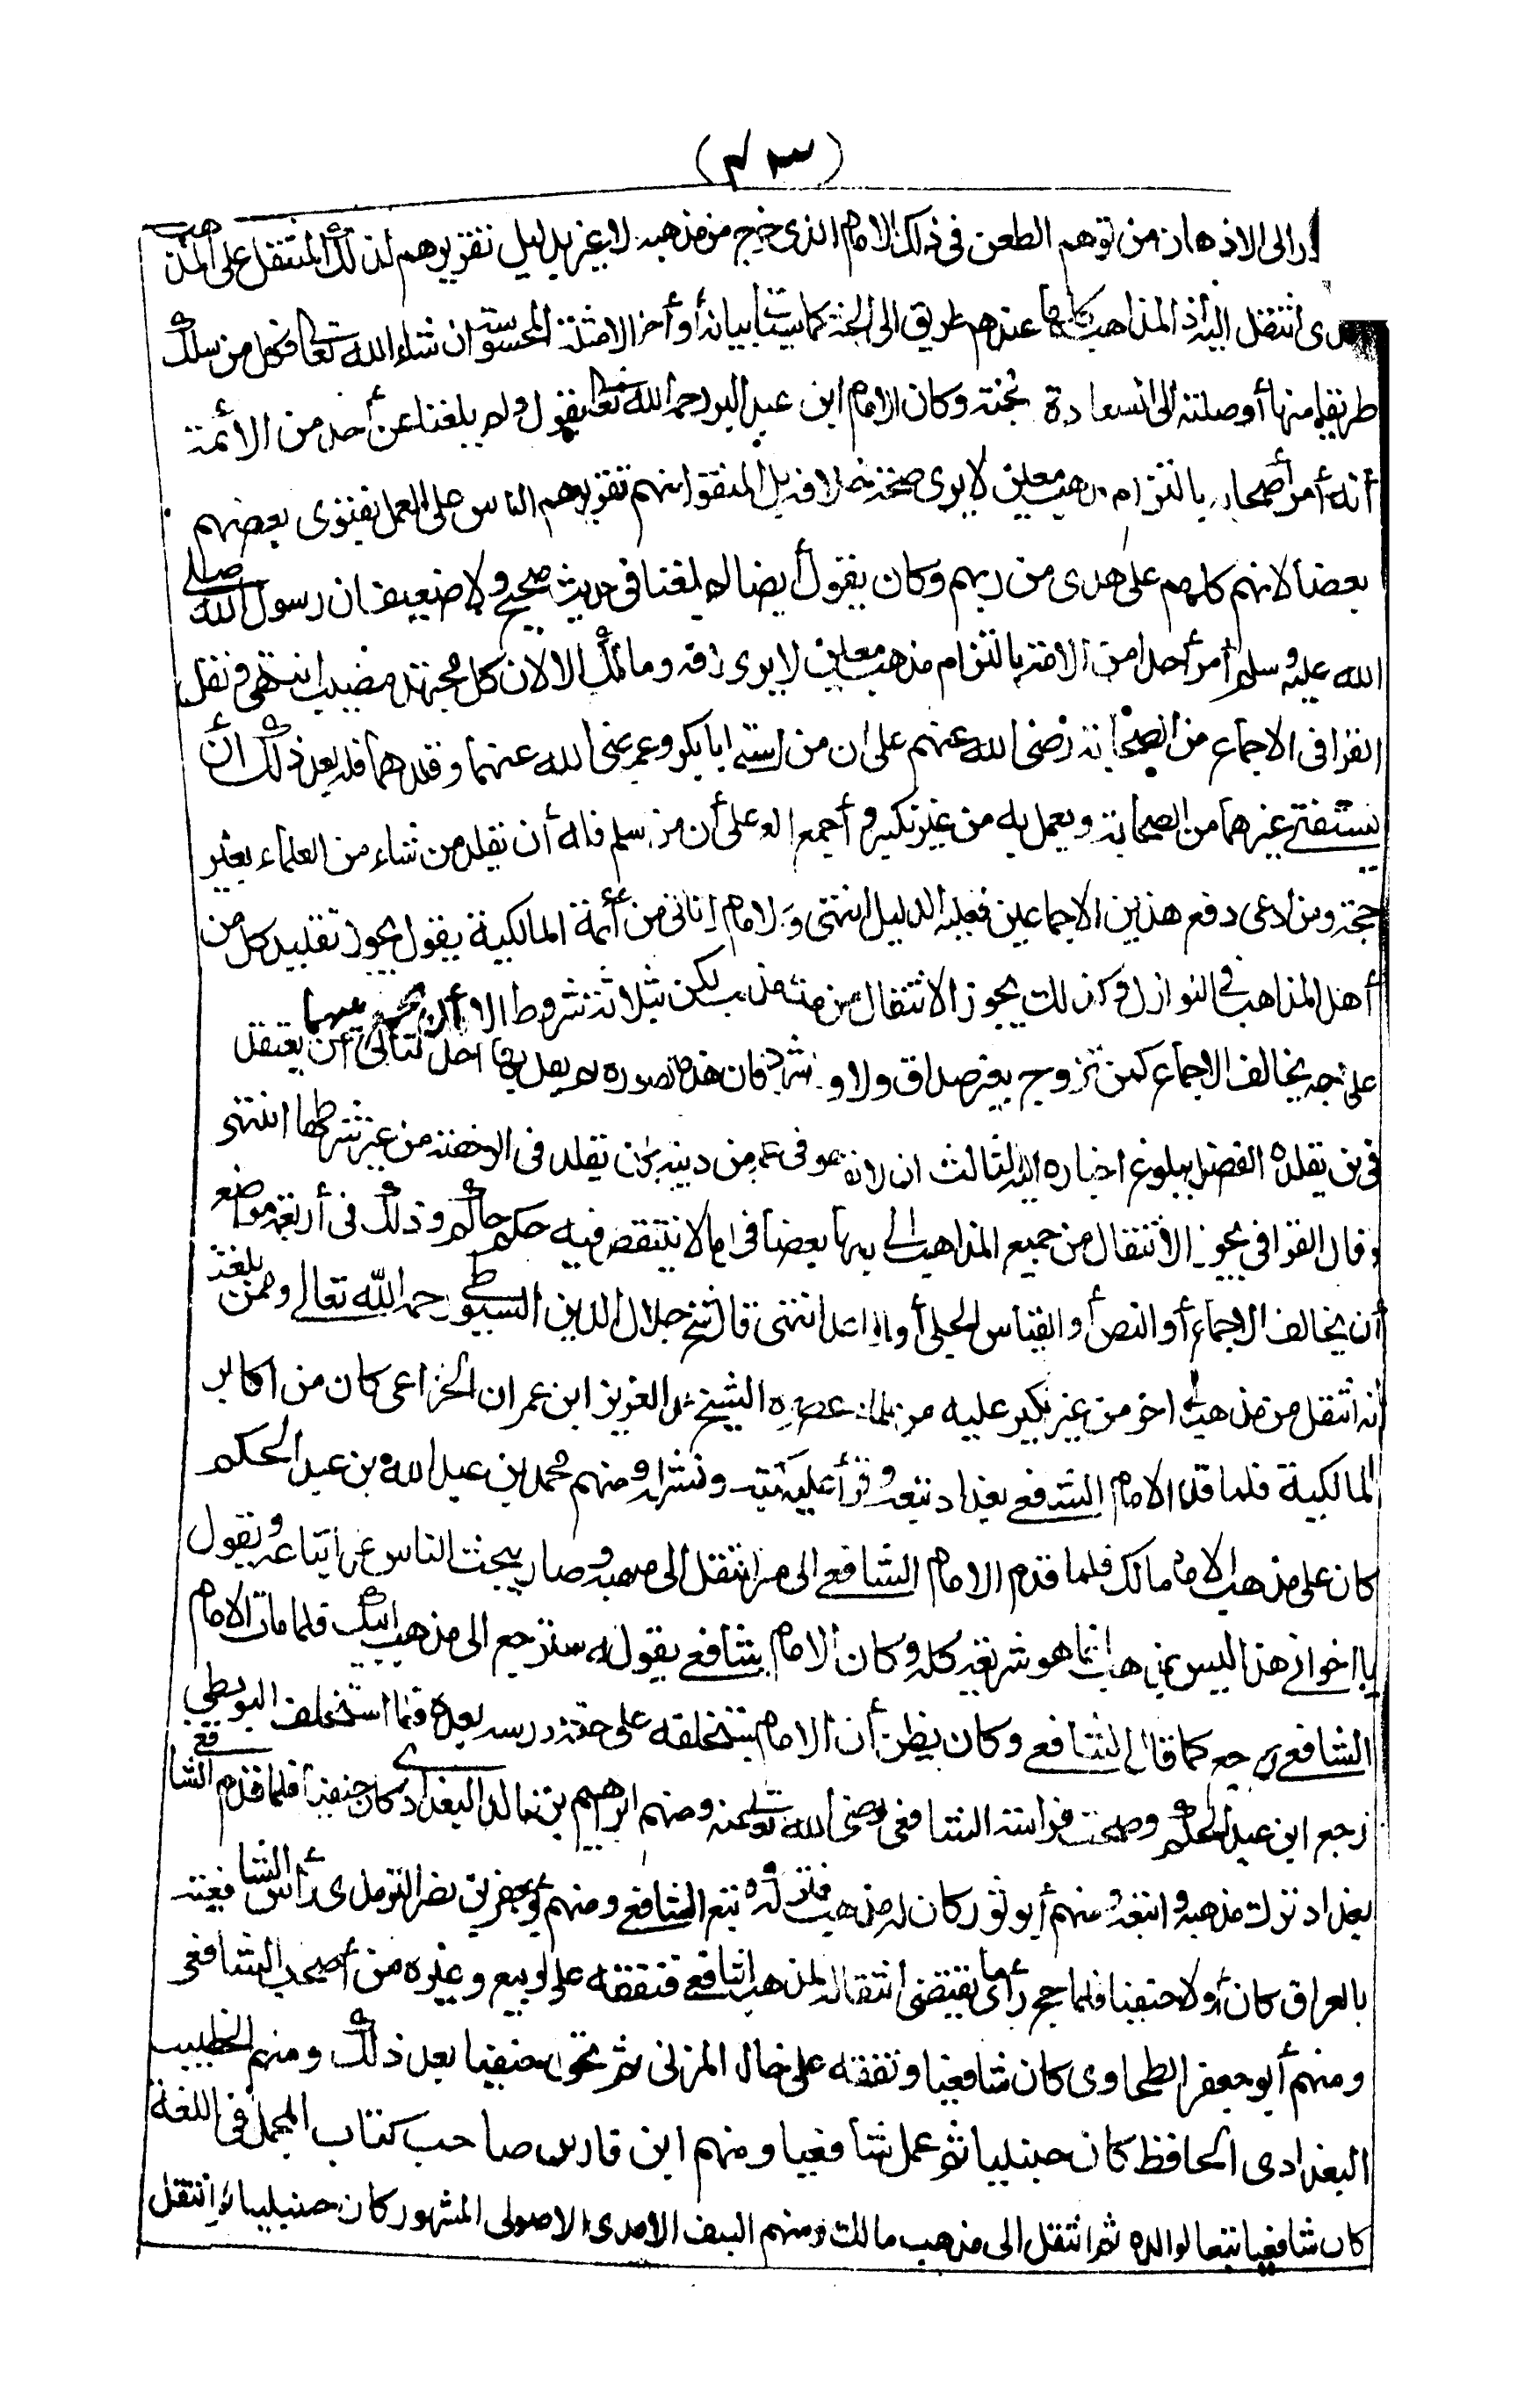 (٤٣)
الى الاذهان من توهم الطعن فى ذلك الامام الذى خرج من مذهبه لا غير بدليل تقريرهم لذلك المنتقل على المذهب
الذى انتقل اليه اذ المذاهب كلها عندهم طريق الى الجنة كما سيأتى بيانه أواخر الامثلة المحسوسة ان شاء الله تعالى فكل من سلك
طريقا منها أوصلته الى السعادة والجنة وكان الامام ابن عبد البر رحمه الله تعالى يقول ولم يبلغنا عن أحد من الأئمة
أنه أمر أصحابه بالتزام مذهب معين لا يرى صحة خلافه بل المنقول عنهم تقريرهم الناس على العمل بفتوى بعضهم
بعضا لانهم كلهم على هدى من ربهم وكان يقول أيضا لم يبلغنا فى حديث صحيح ولا ضعيف ان رسول الله صلى
الله عليه وسلم أمر أحدا من الامة بالتزام مذهب معين لا يرى خلافه وما ذلك الا لان كل مجتهد مصيب انتهى ونقل
القرافى الاجماع من الصحابة رضى الله عنهم على ان من استفتى ابا بكر وعمر رضى الله عنهما وقلدهما فله بعد ذلك أن
يستفتى غيرهما من الصحابة ويعمل به من غير نكير وأجمع العلماء على أن من أسلم فله أن يقلد من شاء من العلماء بغير
حجة ومن ادعى دفع هذين الاجماعين فعليه الدليل انتهى وكان الامام الزناتى من أئمة المالكية يقول يجوز تقليد كل من
أهل المذاهب فى النوازل وكذلك يجوز الانتقال من مذهب الى مذهب لكن بثلاثة شروط الاول أن لا يجمع بينهما
على وجه يخالف الاجماع كمن تزوج بغير صداق ولا ولى ولا شهود فان هذه الصورة لم يقل بها احد الثانى أن يعتقد
فى من يقلده الفضل ببلوغ اخباره اليه الثالث ان لا يقلد وهو فى عماية من دينه كأن يقلد فى الرخصة من غير شرطها انتهى
وقال القرافى يجوز الانتقال من جميع المذاهب الى بعضها بعضا فى كل ما لا ينتقض فيه حكم حاكم وذلك فى أربعة مواضع
أن يخالف الاجماع أو النص أو القياس الجلى أو القواعد انتهى قال الشيخ جلال الدين السيوطى رحمه الله تعالى وممن بلغنا
أنه انتقل من مذهب الى اخر من غير نكير عليه من علماء عصره الشيخ عبد العزيز ابن عمران الخزاعى كان من اكابر
المالكية فلما قدم الامام الشافعى بغداد تبعه وقرأ عليه كتبه ونشر علمه ومنهم محمد بن عبد الله بن عبد الحكم
كان على مذهب الامام مالك فلما قدم الامام الشافعى الى مصر انتقل الى مذهبه وصار يحث الناس على اتباعه ويقول
يا اخوانى هذا ليس بمذهب انما هو شريعة كله وكان الامام الشافعى يقول له سترجع الى مذهب ابيك فلما مات الامام
الشافعى رجع كما قال الشافعى وكان يظن أن الامام يستخلفه على حلقة درسه بعده فلما استخلف البويطى
رجع ابن عبد الحكم وصحت فراسة الشافعى رضى الله تعالى عنه ومنهم ابراهيم بن خالد البغدادى كان حنفيا فلما قدم الشافعى
بغداد ترك مذهبه واتبعه ومنهم أبو ثور كان له مذهب فتركه واتبع الشافعى ومنهم أبو جعفر بن نصر الترمذى رأس الشافعية
بالعراق كان أولا حنفيا فلما حج رأى ما يقتضى انتقاله لمذهب الشافعى فتفقه على الربيع وغيره من أصحاب الشافعى
ومنهم أبو جعفر الطحاوى كان شافعيا وتفقه على خاله المزنى ثم تحول حنفيا بعد ذلك ومنهم الخطيب
البغدادى الحافظ كان حنبليا ثم عمل شافعيا ومنهم ابن فارس صاحب كتاب المجمل فى اللغة
كان شافعيا تبعا لوالده ثم انتقل الى مذهب مالك ومنهم السيف الامدى الاصولى المشهور كان حنبليا ثم انتقل